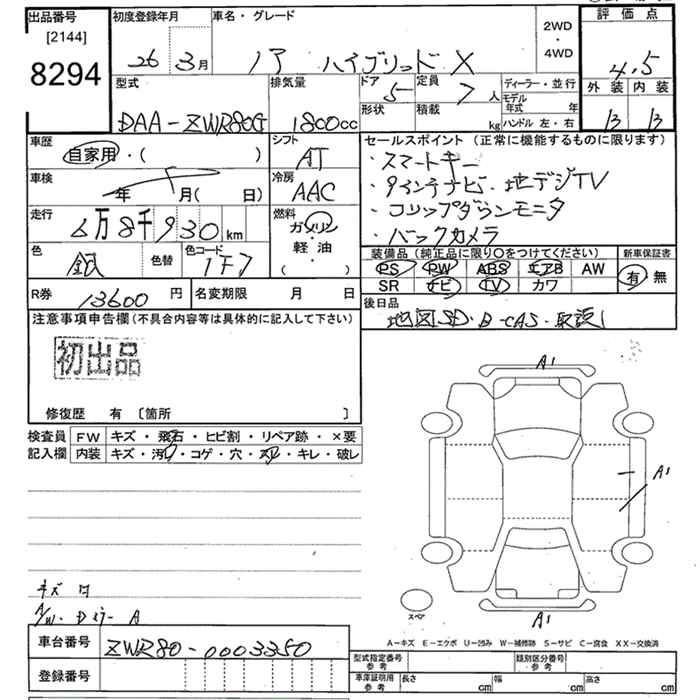 出品番号 初度登録年月 車名・グレード 2WD・4WD 評価点
[2144]
8294
26年 3月 ノア ハイブリッド X 4.5
型式 排気量 ドア 5 定員 7人 ディーラー・並行 外装 内装
形状 積載 kg モデル年式 年
DAA-ZWR80G 1800cc ハンドル 左・右 B B
車歴 自家用・( ) シフト AT セールスポイント (正常に機能するものに限ります)
・スマートキー
車検 年 月( 日) 冷房 AAC ・9インチナビ・地デジTV
走行 6万8千930km 燃料 ガソリン・軽・油 ( ) ・コリップダウンモニタ
・バックカメラ
色 銀 色替 色コード 1F7 装備品 (純正品に限り○をつけてください) 新車保証書
PS PW ABS エアB AW 有・無
SR ナビ TV カワ
R券 13600円 名変期限 月 日 後日品
地図SD・B-CAS・取説
注意事項申告欄(不具合内容等は具体的に記入して下さい)
初出品
修復歴 有 〔箇所 〕
検査員 FW キズ・飛石・ヒビ割・リペア跡・×要
記入欄 内装 キズ・汚レ・コゲ・穴・スレ・キレ・破レ
A1
A1
キズ
A スペア
A1
車台番号 ZWR80-0003350
A-キズ E-エクボ U-凹み W-補修跡 S-サビ C-腐食 XX-交換済
登録番号
型式指定番号 参考 類別区分番号 参考
車庫証明用 参考 長さ cm 幅 cm 高さ cm